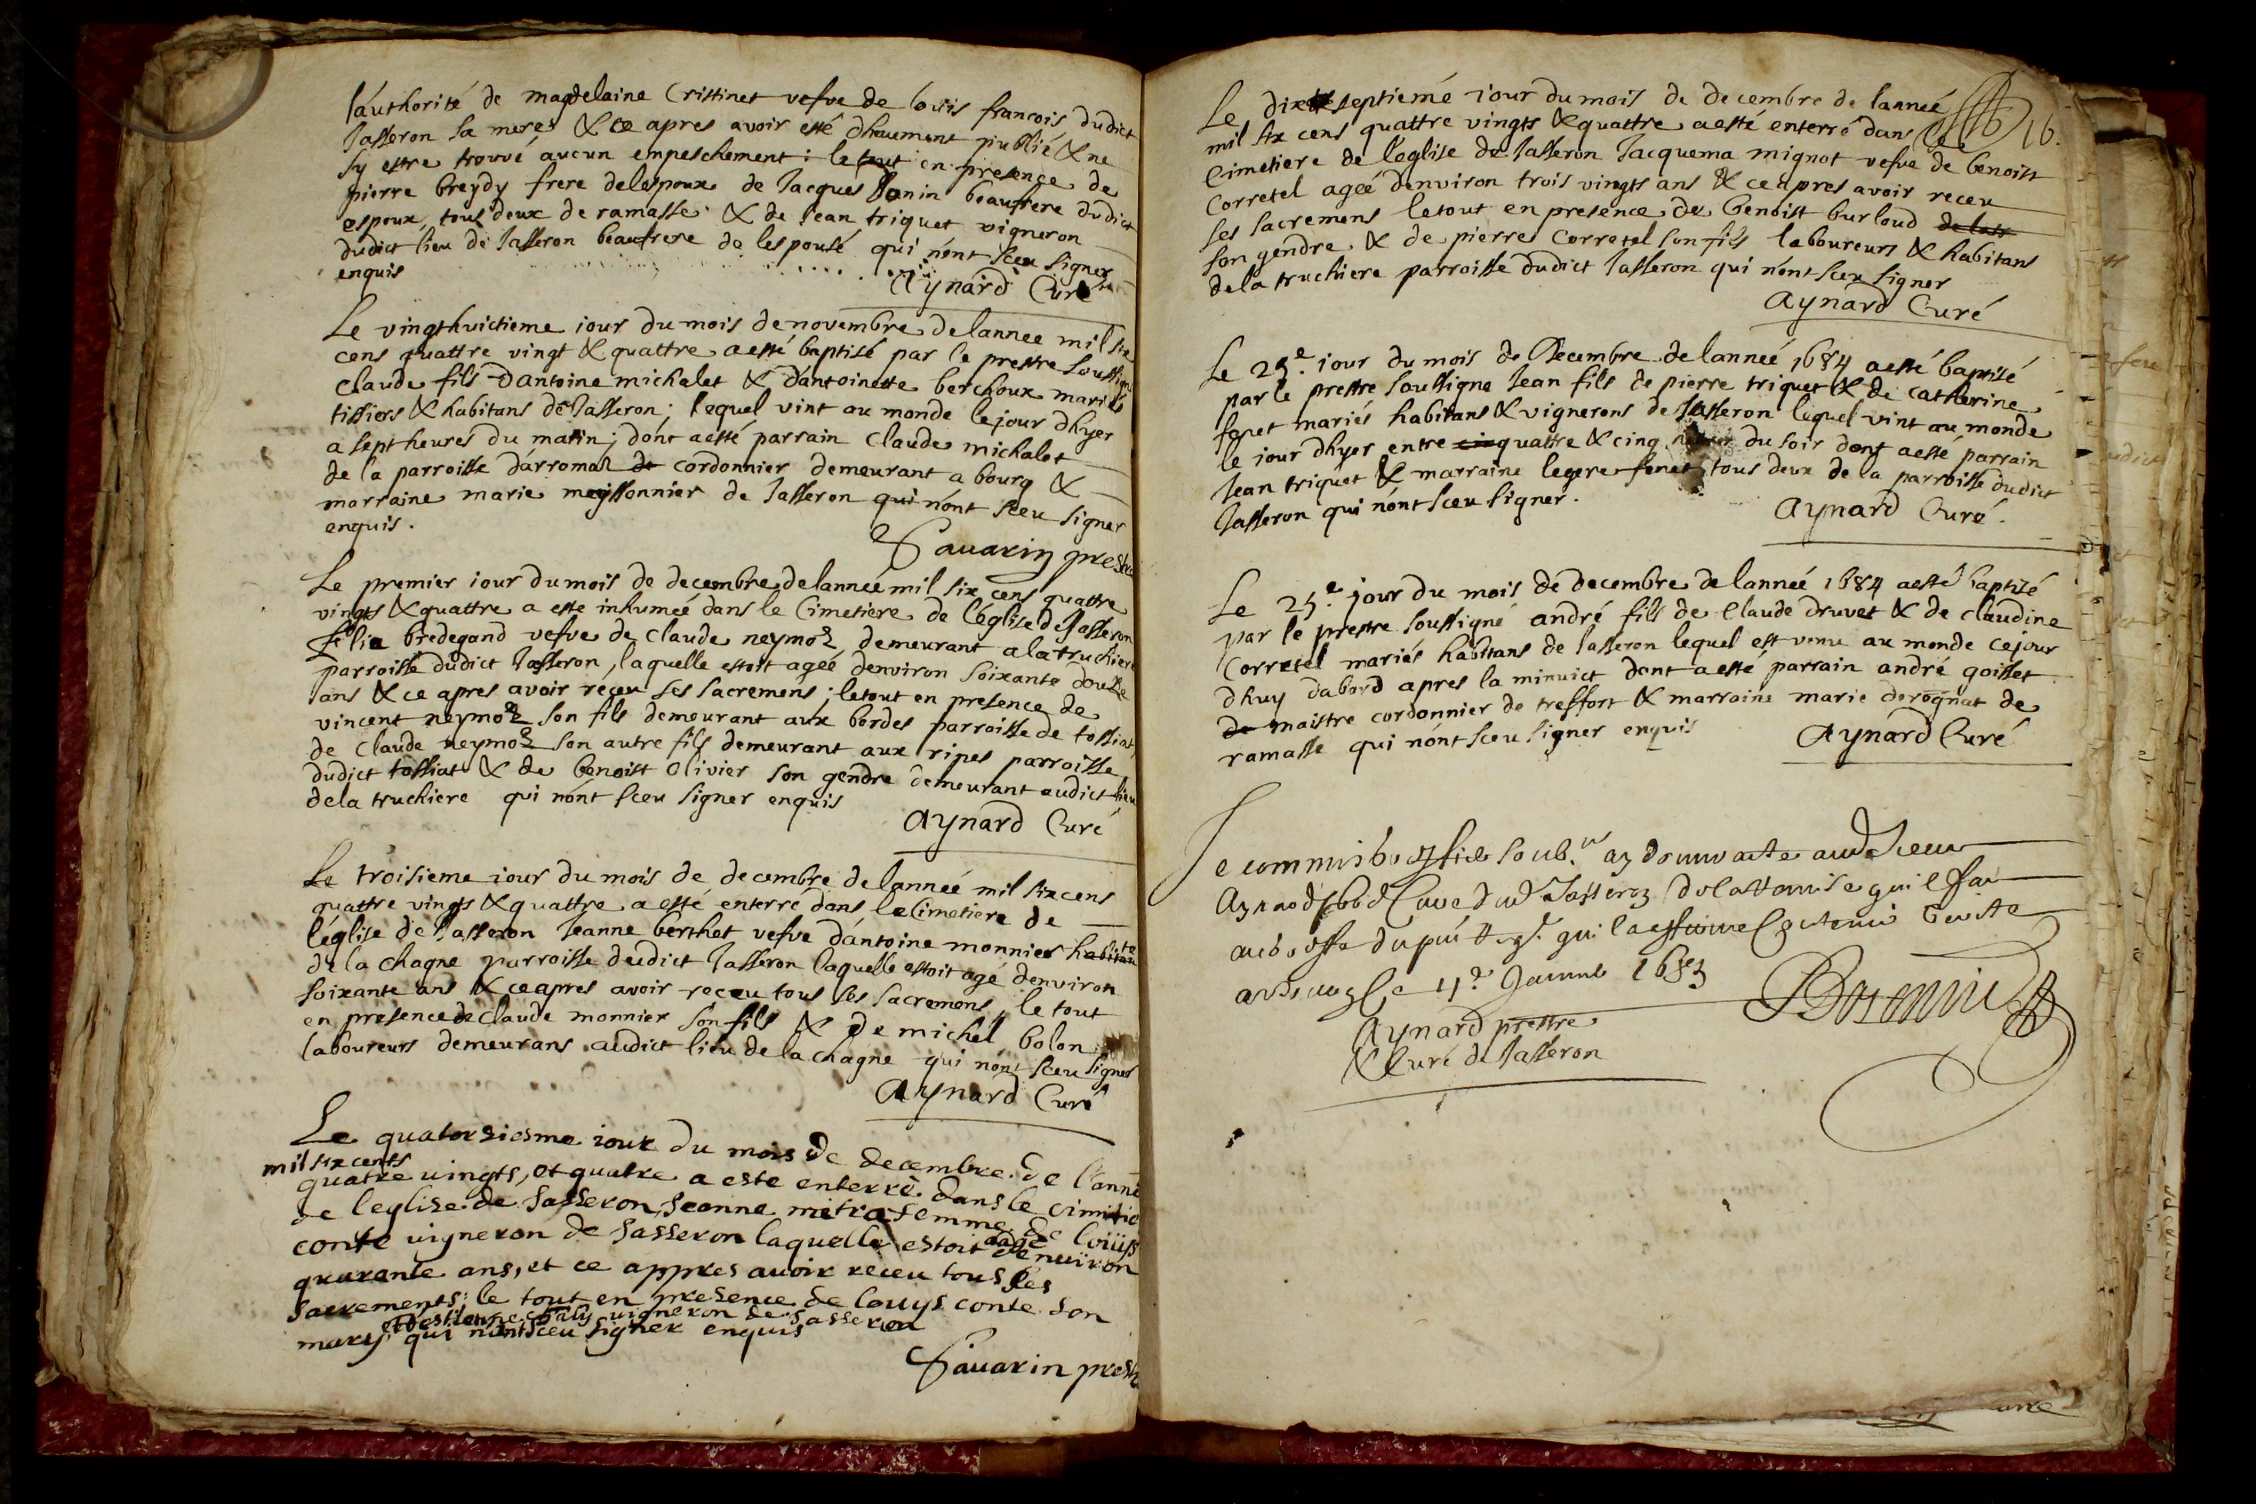 lauthorité de magdelaine Cristinet vefve de louis francois dudict
Jasseron sa mere; & ce apres avoir esté dheument publié & ne
sy estre trouvé aucun empeschement: le tout en presence de
pierre breydy frere de lespoux de Jacques Janin beaufrere dudict
espoux, tous deux de ramasse & de Jean triquet vigneron
dudict lieu de Jasseron beaufrere de lespousé qui nont sceu signer
enquis
Aynard Curé
Le vingthuictieme iour du mois de novembre de lannee mil six
cens quattre vingt & quattre a esté baptisé par le prestre soussigné
Claude fils dantoine michalet & dantoinette berchoux mariés
tissiers & habitans de Jasseron; lequel vint au monde le jour dhyer
a sept heures du matin; dont a esté parrain Claude michalet
de la parroisse darromaz de cordonnier demeurant a bourg &
marraine marie meyssonnier de Jasseron qui nont sceu signer
enquis.
Savarin prestre
Le premier iour du mois de decembre de lanneé mil six cens quattre
vingts & quattre a este inhumeé dans le Cimetiere de léglise de Jasseron
bredegand vefve de Claude neymoz demeurant a la truchiere
parroisse dudict Jasseron, laquelle estoit ageé denviron soixante douze
ans & ce apres avoir receu ses sacremens; le tout en presence de
vincent neymoz son fils demeurant aux bordes parroisse de tossiat,
de Claude neymoz son autre fils demeurant aux ripes parroisse
dudict tossiat & de benoist Olivier son gendre demeurant audict lieu
de la truchiere qui nont sceu signer enquis
Aynard Curé
Le troisieme iour du mois de decembre de lanneé mil six cens
quattre vingts & quattre a esté enterré dans le Cimetiere de
léglise de Jasseron Jeanne berthet vefve dantoine monnier habitans
de la chagne parroisse dudict Jasseron laquelle estoit agé denviron
soixante ans & ce apres avoir receu tous ses sacremens, le tout
en presence de Claude monnier son fils & de michel bolon
laboureurs demeurans audict lieu de la chagne qui nont sceu signer
Aynard Curé
Le quatorsiesme iour du mois de decembre de l'anné
mil six cents
quatre uingts, et quatre a este enterré dans le cimitie
de leglise de Jasseron, Jeanne mitra femme de loüis
conte uigneron de Jasseron laquelle estoit aagé denuiron
quarante ans, et ce appres auoir receu tous les
sacrements: le tout en presence de louys conte son
et destienne uigneron de Jasseron
mary qui nont sceu signer enquis
Sauarin prestre
16.
Le dix septiemé iour du mois de decembre de lanneé
mil six cens quattre vingts & quattre a esté enterré dans le
Cimetiere de leglise de Jasseron Jacquema mignot vefve de benoist
Corretel ageé denviron trois vingts ans & ce apres avoir receu
ses sacremens le tout en presence de benoist burloud
son gendre & de pierre Corretel son fils laboureurs & habitans
de la truchiere parroisse dudict Jasseron qui nont sceu signer
Aynard Curé
Le 25e. iour du mois de Decembre de lanneé 1684 a esté baptisé
par le prestre soussigne Jean fils de pierre triquet & de catherine
feret mariés habitans & vignerons de Jasseron lequel vint au monde
le iour dhyer entre cin quattre & cinq heures du soir dont a esté parrain
Jean triquet & marraine legere feret tous deux de la parroisse dudict
Jasseron qui nont sceu signer.
Aynard Curé.
Le 25e. jour du mois de decembre de lanneé 1684 a esté baptisé
par le prestre soussigné andré fils de Claude druvet & de claudine
Corretel mariés habitans de Jasseron lequel est venu au monde ce jour
dhuy dabord apres la minuict dont a esté parrain andré goisset
de maistre cordonnier de treffort & marraine marie derognat de
ramasse qui nont sceu signer enquis
Aynard Curé
Aynard prestre
& Curé de Jasseron